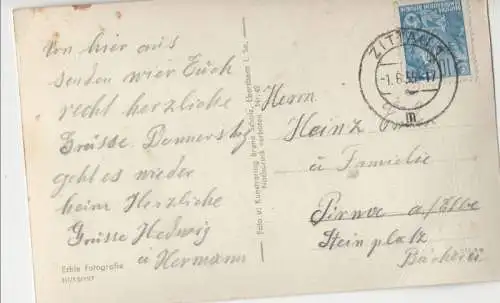 Von hier aus
senden wier Euch
recht herzliche
Grüsse. Donnerstg
geht es wieder
heim Herzliche
Grüsse Hedwig
u Hermann
Echte Fotografie
Foto u. Kunstverlag Bruno Scholz, Ebersbach i. Sa.
Nachdruck verboten. Nr.
ZITTAU
-1.6.55-17
m
Herrn
Heinz
u Familie
Pirna a/Elbe
Steinplatz
Bäckerei